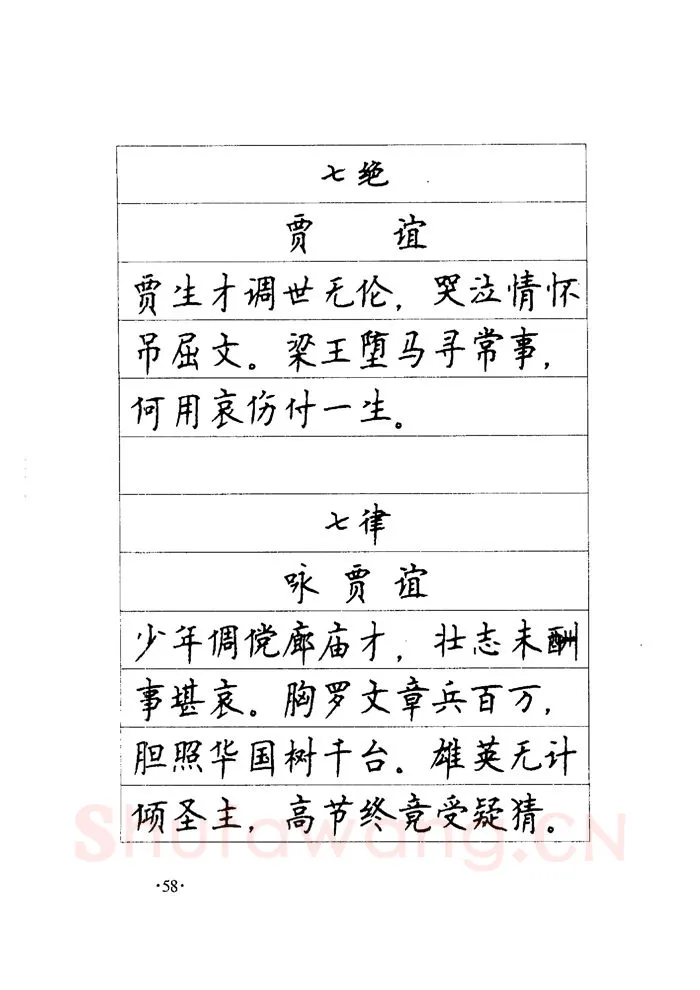 七绝
贾 谊
贾生才调世无伦，哭泣情怀
吊屈文。梁王堕马寻常事，
何用哀伤付一生。
七律
咏贾谊
少年倜傥廊庙才，壮志未酬
事堪哀。胸罗文章兵百万，
胆照华国树千台。雄英无计
倾圣主，高节终竟受疑猜。
Shufawang.CN
·58·